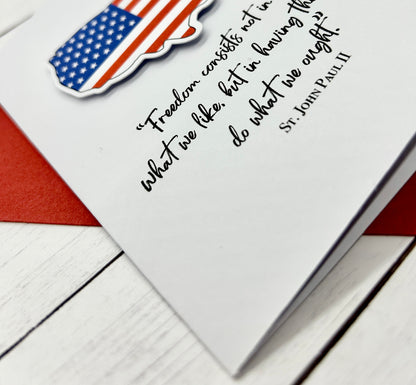 “Freedom consists not in
what we like, but in having the
do what we ought.”
St. John Paul II